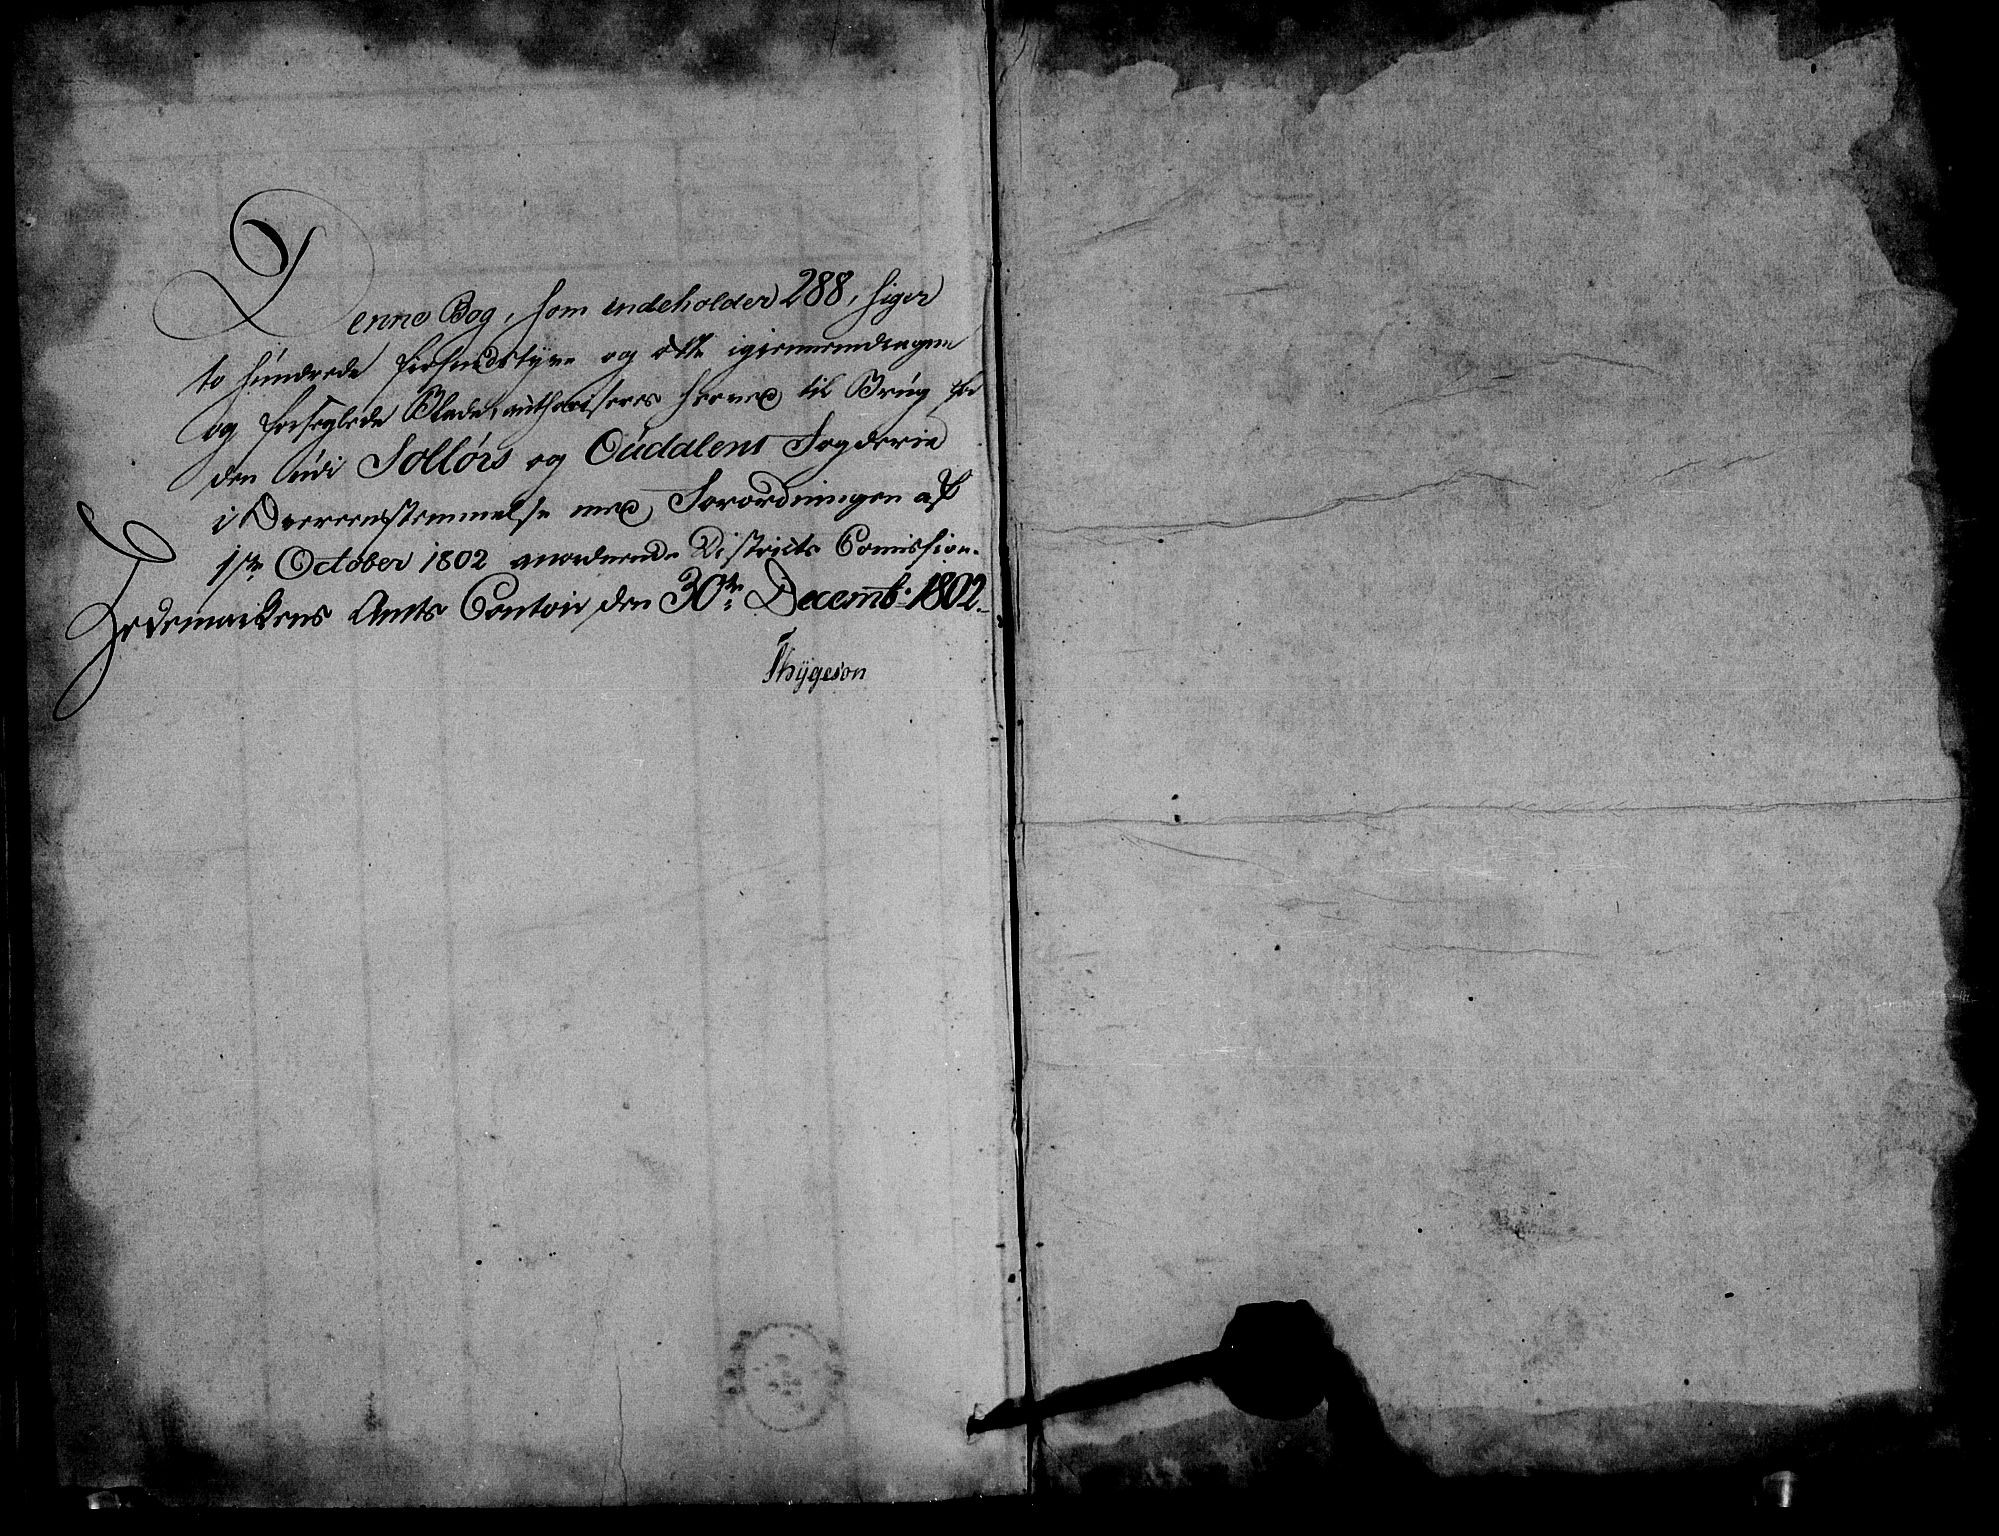 Denne Bog, som indeholder 288, siger
to hundrede fiirsindstyve og otte igiennemdragne
og forseglede Blade, authoriseres herved til Brug for
den udi Sollørs og Oudalens Fogderie
i Overeensstemmelse med Forordningen af
1ste October 1802 anordnende Districts Comission.
Hedemarkens Amts Contoir den 30te Decembr. 1802.
Thygeson